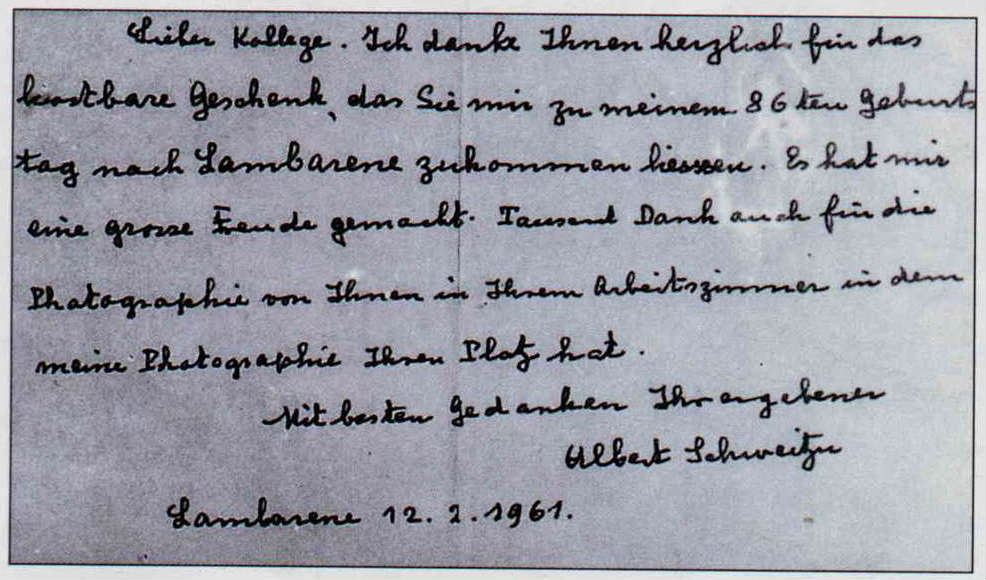 Lieber Kollege. Ich danke Ihnen herzlich für das
kostbare Geschenk, das Sie mir zu meinem 86ten Geburts
tag nach Lambarene zukommen liessen. Es hat mir
eine grosse Freude gemacht. Tausend Dank auch für die
Photographie von Ihnen in Ihrem Arbeitszimmer in dem
meine Photographie Ihren Platz hat.
Mit besten Gedanken Ihr ergebener
Albert Schweitzer
Lambarene 12.2.1961.